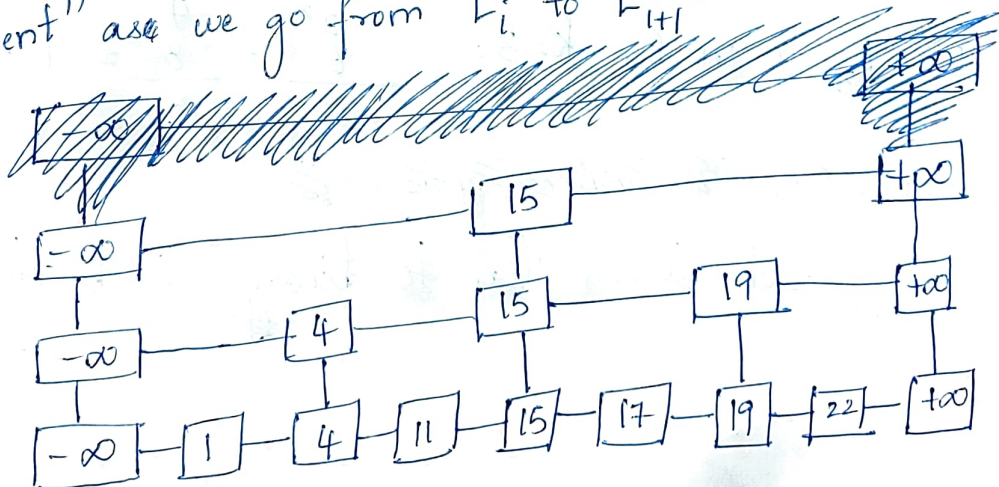 ent" as we go from Li to Li+1
-∞ +∞
-∞ 15 +∞
-∞ 4 15 19 +∞
-∞ 1 4 11 15 17 19 22 +∞